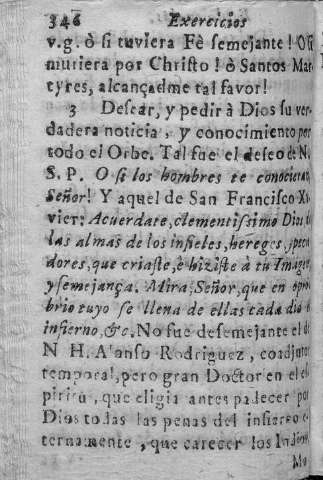 346 Exercicios
v.g. ò si tuviera Fè semejante! O si
muriera por Christo! ò Santos Mar
tyres, alcançadme tal favor!
3 Desear, y pedir à Dios su ver
dadera noticia, y conocimiento por
todo el Orbe. Tal fue el deseo de N.
S. P. O si los hombres te conocieran
Señor! Y aquel de San Francisco Xa
vier: Acuerdate, clementissimo Dios, de
las almas de los infieles, hereges, y peca
dores, que criaste, è hiziste à tu Imagen
y semejança. Mira, Señor, que en opro
brio tuyo se llena de ellas cada dia el
infierno, &c. No fue desemejante el de
N H. Alonso Rodriguez, coadjutor
temporal, pero gran Doctor en el es
piritu, que eligia antes padecer por
Dios todas las penas del infierno e
ternamente, que carecer los Indios